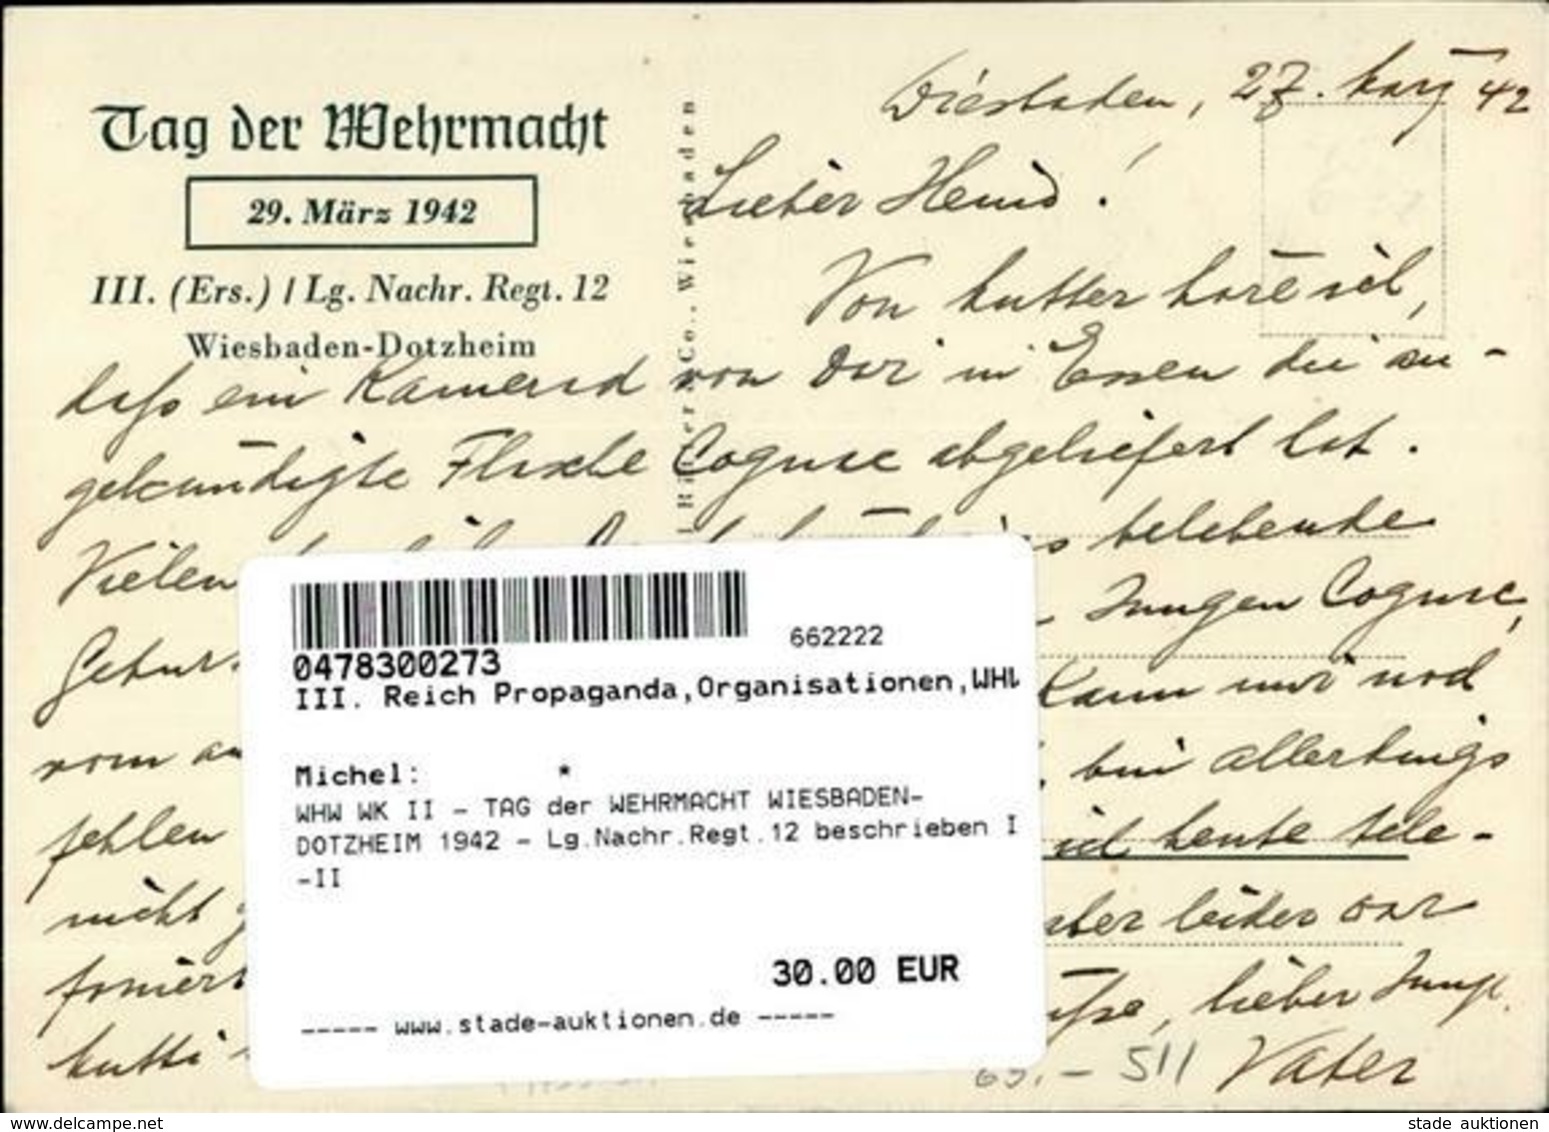 Tag der Wehrmacht
29. März 1942
III. (Ers.) / Lg. Nachr. Regt. 12
Wiesbaden-Dotzheim
Co., Wiesbaden
Wiesbaden, 27. März 42
Lieber Heini!
Von Mutter höre ich,
daß ein Kamerad von Dir in Essen die an-
gekündigte Flasche Cognac abgeliefert hat.
Vielen belebende
Jungen Cognac,
vom kann nur noch
fehlen bin allerdings
nicht ich heute tele-
foniert aber leider war
Mutti lieber Junge.
Vater
65.- 511
0478300273
662222
III. Reich Propaganda,Organisationen,WHW
Michel: *
WHW WK II - TAG der WEHRMACHT WIESBADEN-
DOTZHEIM 1942 - Lg.Nachr.Regt.12 beschrieben I
-II
30.00 EUR
----- www.stade-auktionen.de -----
www.delcampe.net
stade auktionen